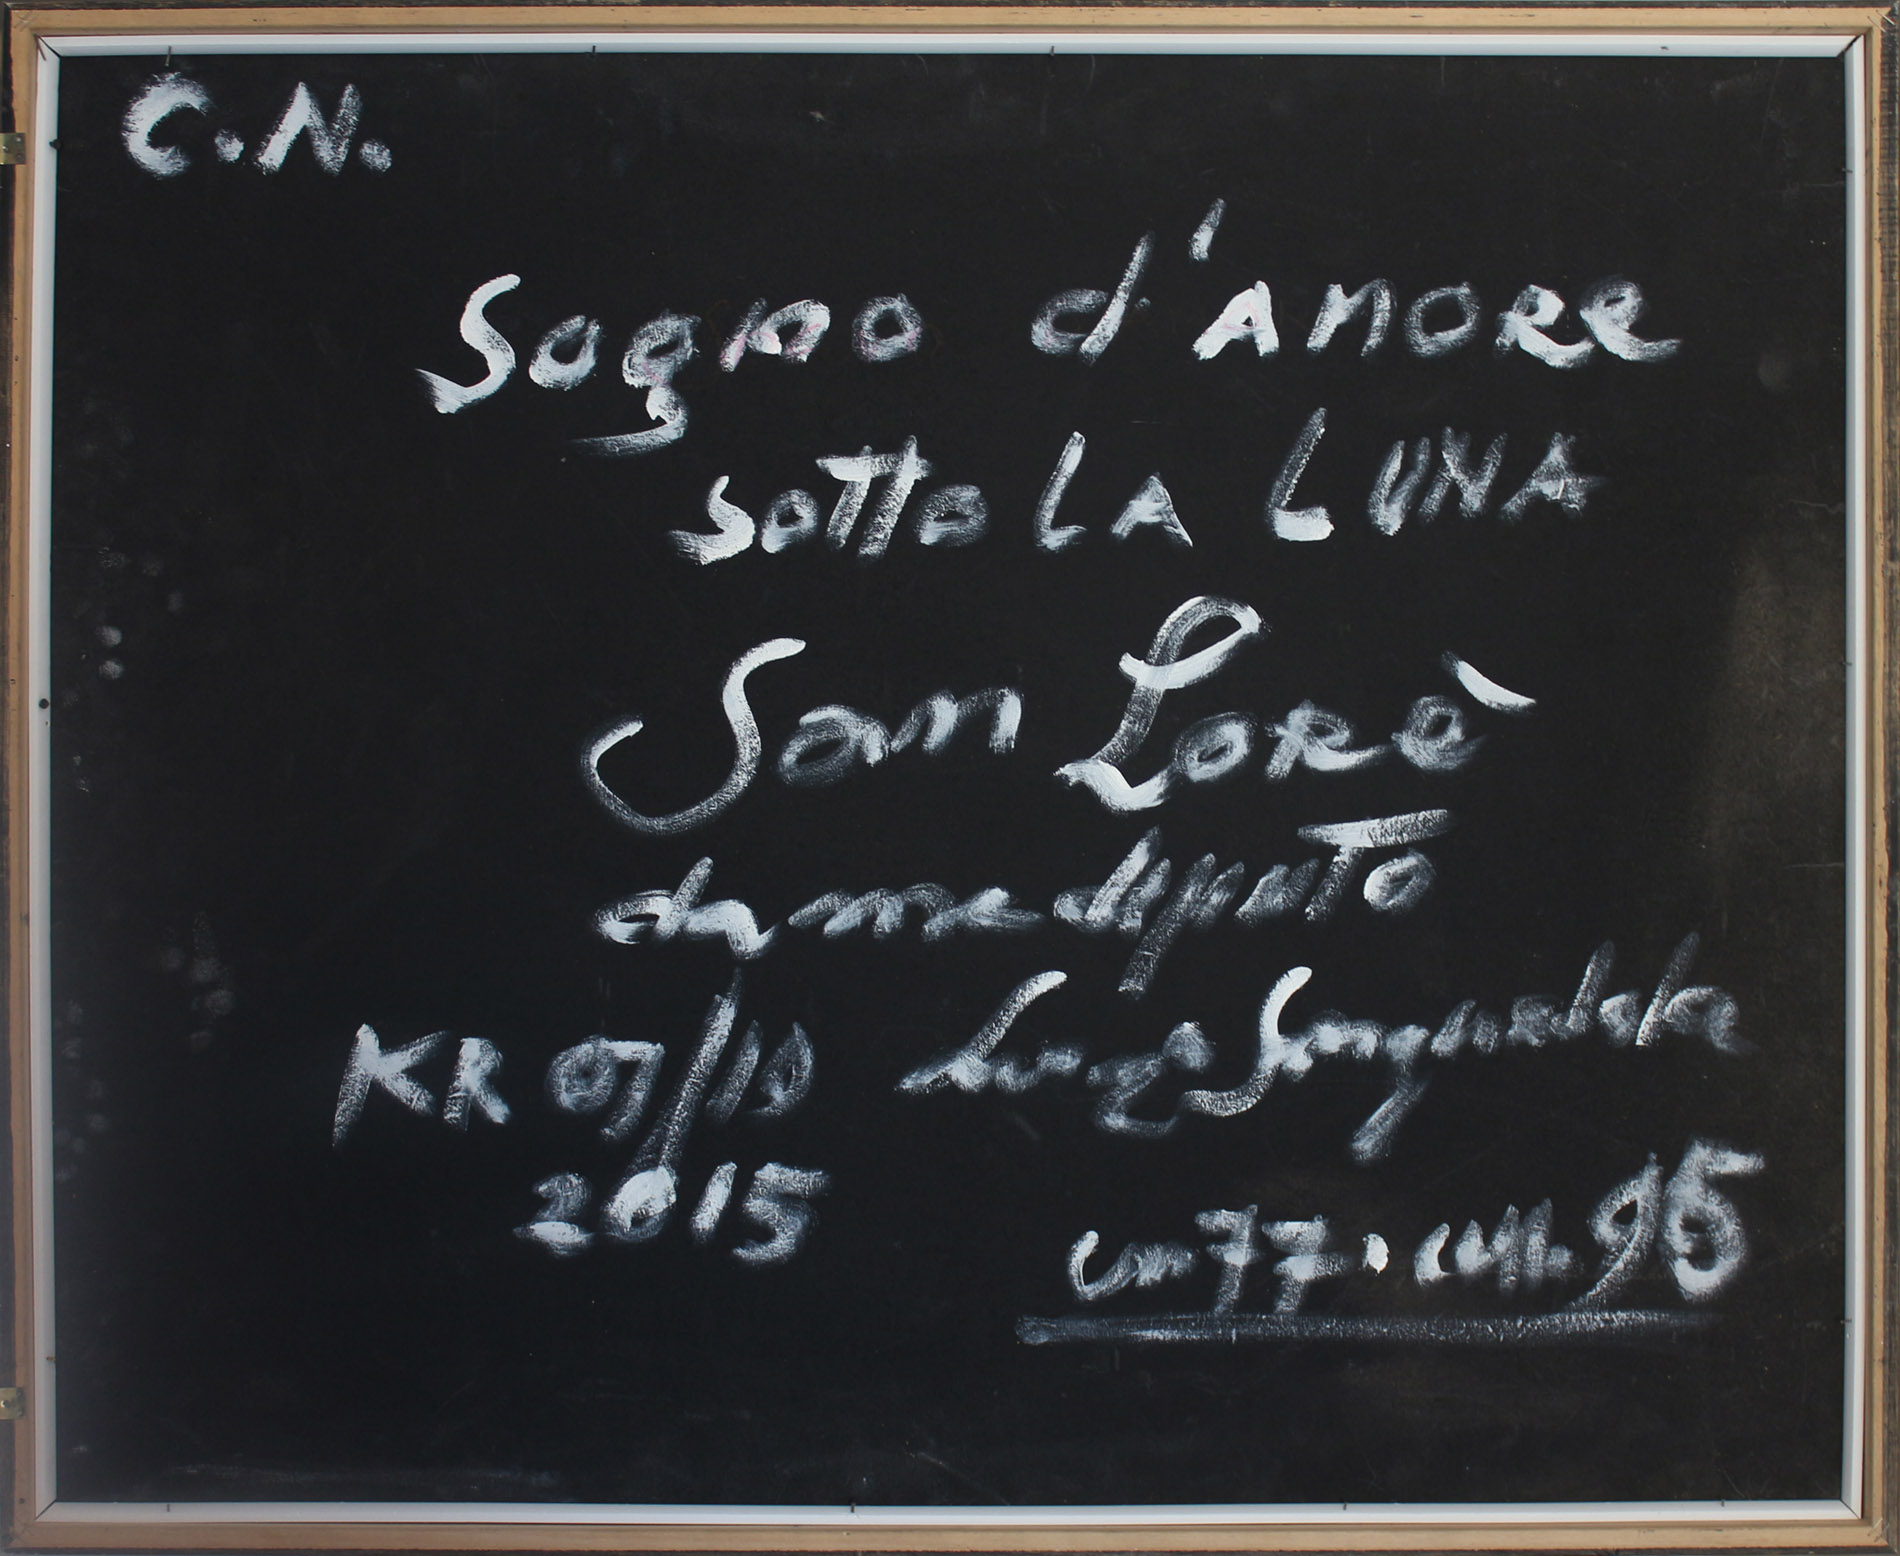 C.N.
Sogno d'AMORe
sotto LA LUNA
San Lorè
da me dipinto
KR 07/10 Luigi
2015
cm 77 • cm 96